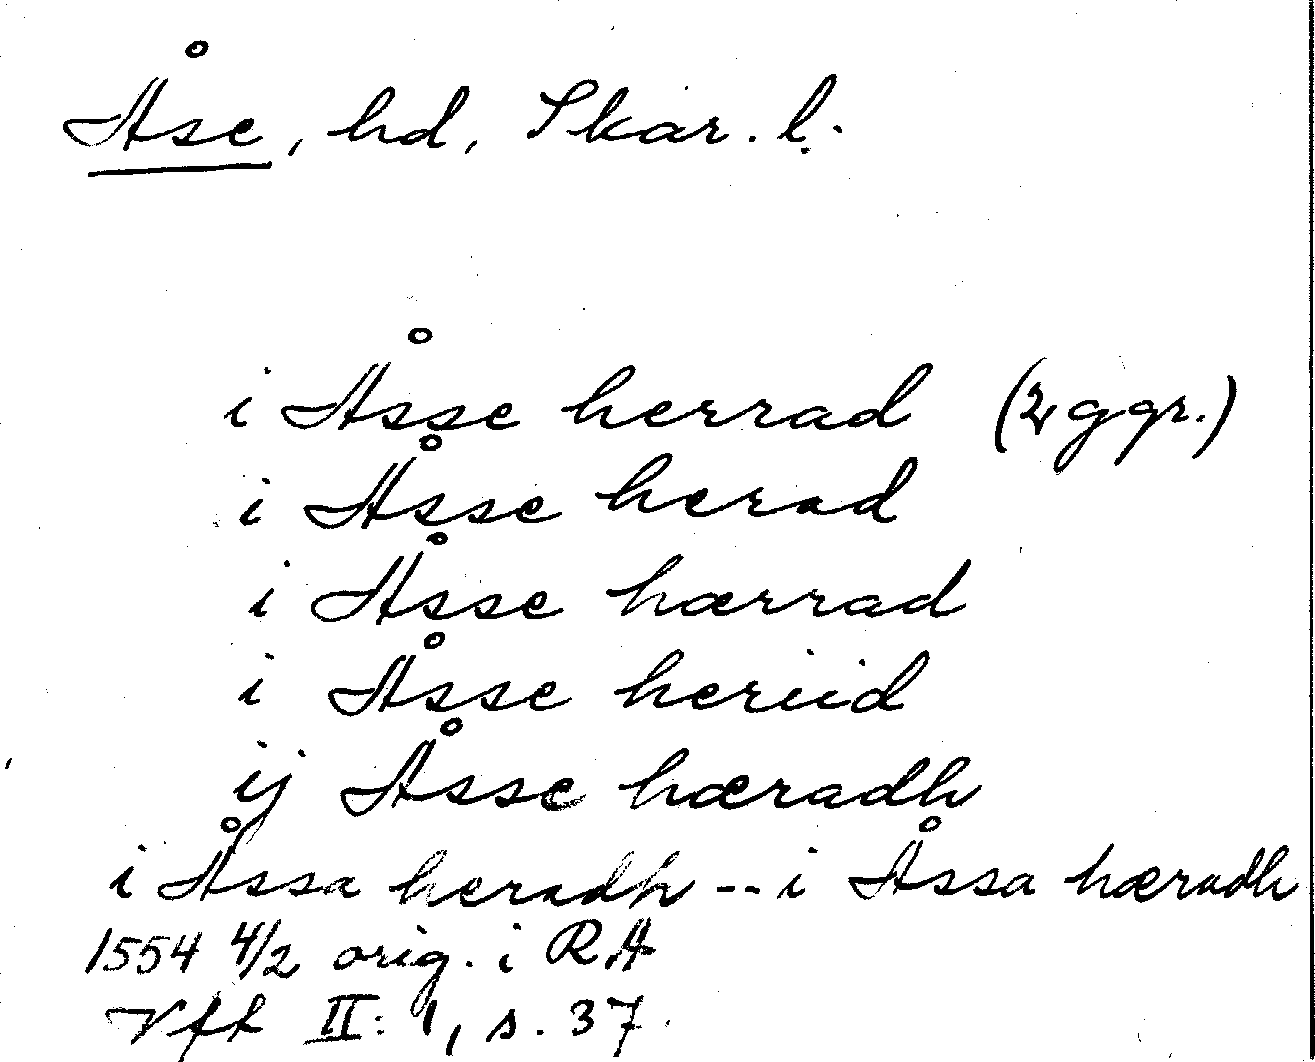 Åse, hd, Skar. l.
i Åsse herrad (2 ggr.)
i Åsse herad
i Åsse hærrad
i Åsse heriid
ij Åsse hæradh
i Åssa heradh -- i Åssa hæradh
1554 4/2 orig. i RA
Vff II: 1, s. 37.